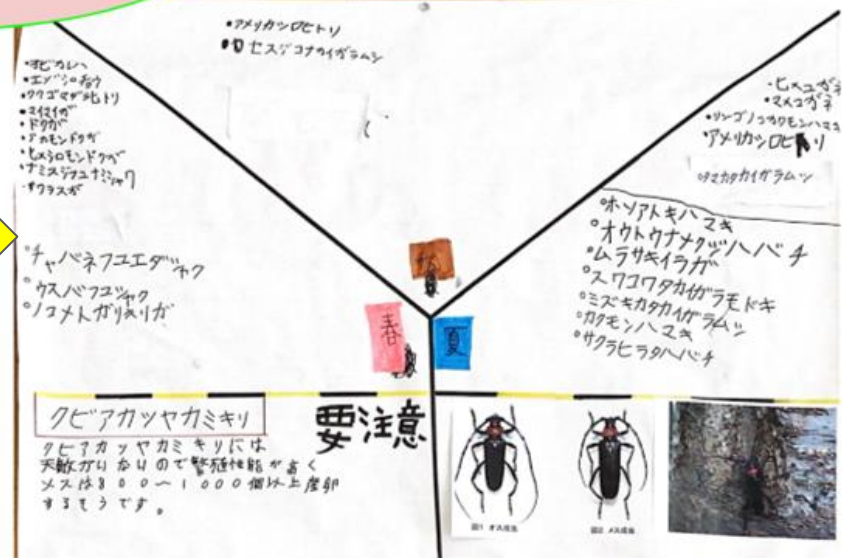 ・アメリカシロヒトリ
・セスジコナカイガラムシ
・オビカレハ
・エゾシロチョウ
・クワゴマダラヒトリ
・マイマイガ
・ドクガ
・アカモンドクガ
・ヒメシロモンドクガ
・ナミスジフユナミシャク
・オカラスガ
・チャバネフユエダシャク
・ウスバフユシャク
・ノコメトガリキリガ
・ヒメコガネ
・マメコガネ
・リンゴノコカクモンハマキ
・アメリカシロヒトリ
・タマカタカイガラムシ
・ホソアトキハマキ
・オウトウナメクジハバチ
・ムラサキイラガ
・スワコワタカイガラモドキ
・ミズキカタカイガラムシ
・カクモンハマキ
・サクラヒラタハバチ
秋
春
夏
クビアカツヤカミキリ
要注意
クビアカツヤカミキリには
天敵がいないので繁殖性能が高く
メスは800〜1000個以上産卵
するそうです。
図1 オス成虫
図2 メス成虫